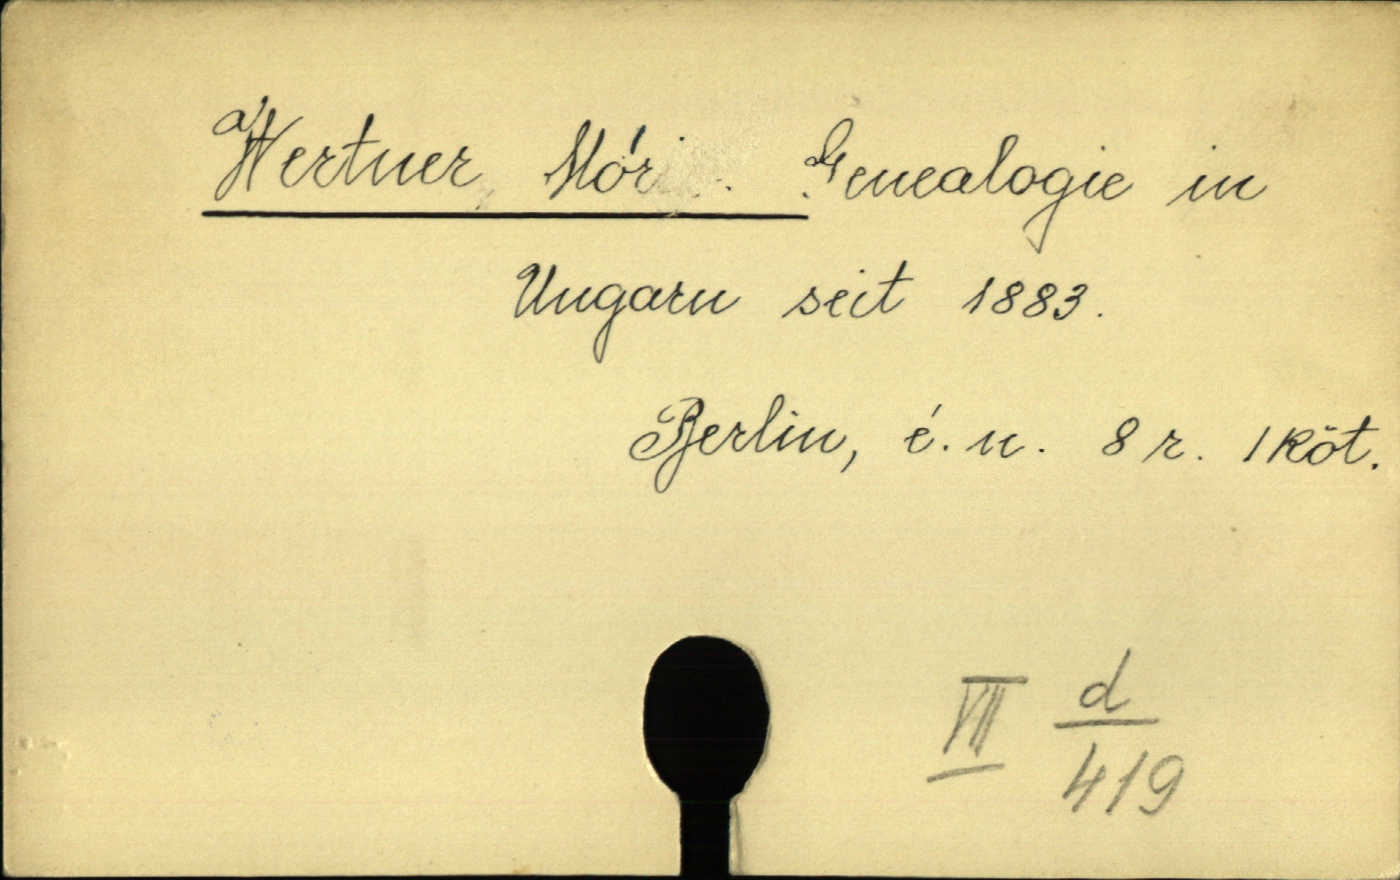 a/Wertner Mór. Genealogie in
Ungarn seit 1883.
Berlin, é. n. 8 r. 1 köt.
VII d/419